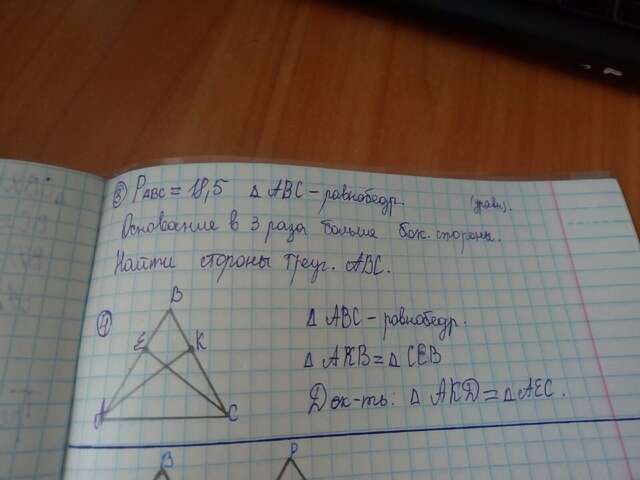 ③ P ABC = 18,5 Δ ABC – равнобедр. (уравн).
Основание в 3 раза больше бок. стороны.
Найти стороны треуг. ABC.
④
B
E K
A C
Δ ABC – равнобедр.
Δ AKB = Δ CEB
Док-ть: Δ AKD = Δ AEC.
B P